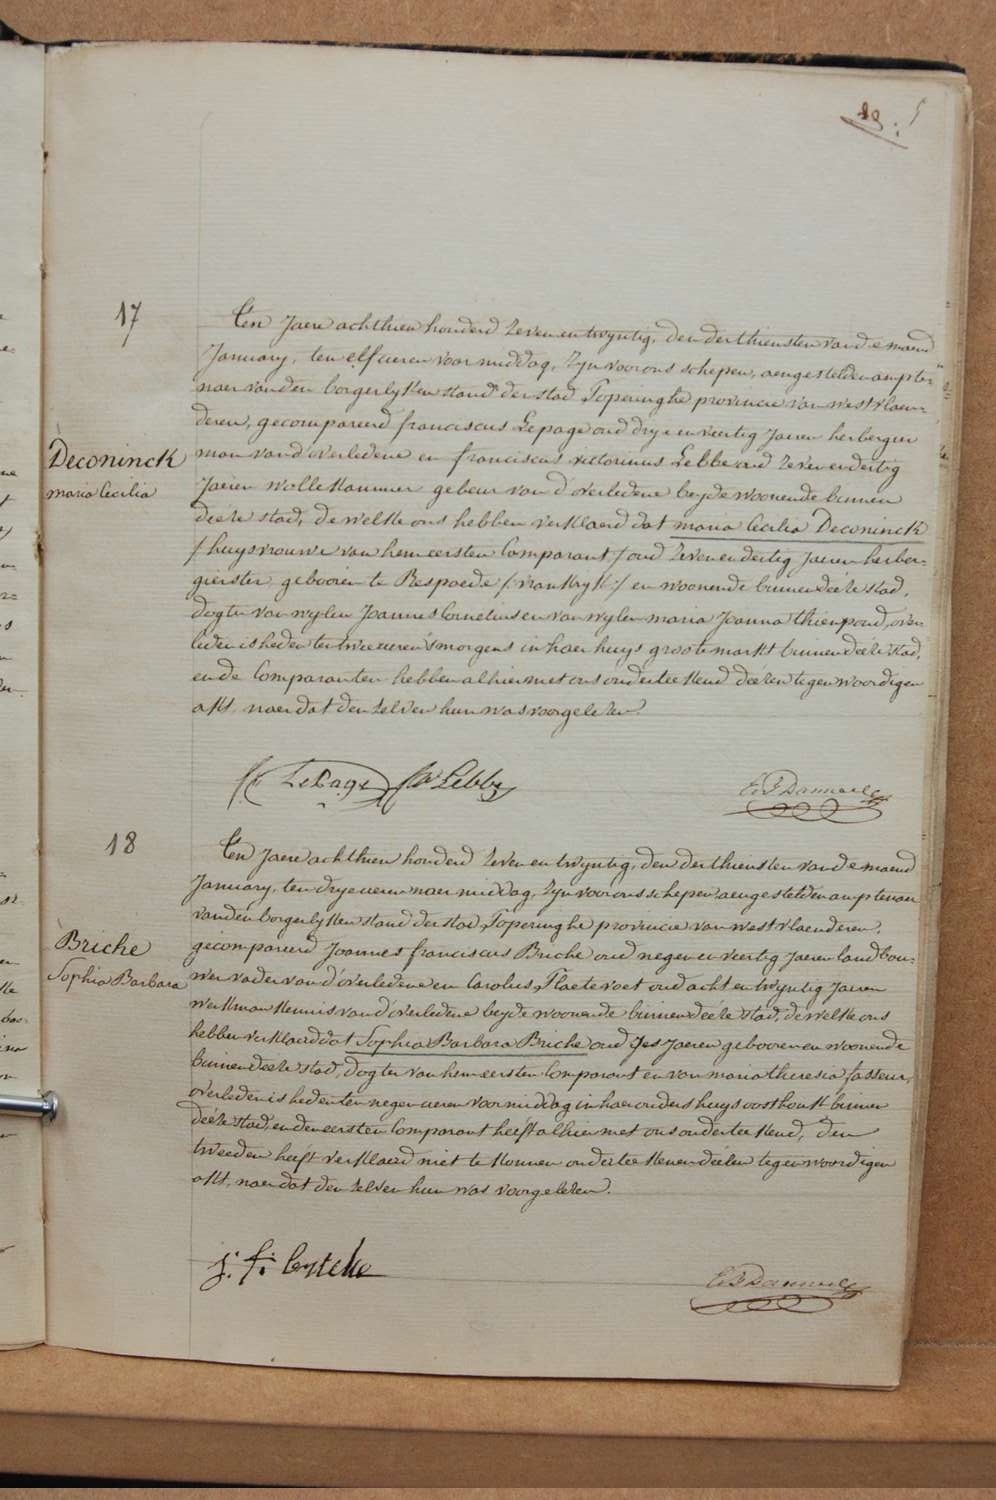 17
Ten Jaere achthien honderd zeven en twyntig, den derthiensten van de maend
January, ten elf ueren voormiddag, Zyn voor ons schepen, aengestelden ampte-
naer van den borgerlyken stand der stad Poperinghe provincie van westvlaen-
deren, gecompareerd franciscus Lepage oud drye en veertig Jaeren herbergier
man van d'overledene en franciscus victorinus Lebbe oud zeven en dertig
Jaeren wollekammer gebeur van d'overledene beyde woonende binnen
deéze stad, de welke ons hebben verklaerd dat maria Cecilia Deconinck
/huysvrouwe van hem eersten Comparant/ oud zeven en dertig Jaeren herber-
gierster, gebooren te Respoede /:vrankryk:/ en woonende binnen deéze stad,
dogter van wylen Joannes Cornelius en van wylen maria Joanna thienpond, over-
leden is heden ten twee ueren 'smorgens in haer huys groote markt binnen deéze stad,
en de Comparanten hebben alhier met ons onderteekend deézen tegenwoordigen
akt, naer dat den zelven hun was voorgelezen.
Deconinck
maria Cecilia
Lepage fv Lebbe
18
Ten Jaere achthien honderd zeven en twyntig, den derthiensten van de maend
January, ten drye ueren naermiddag, Zyn voor ons schepen aengestelden amptenaer
van den borgerlyken stand der stad Poperinghe provincie van westvlaenderen,
gecompareerd Joannes franciscus Briche oud negen en veertig Jaeren landbou-
wer vader van d'overledene en Carolus Plaetevoet oud acht en twyntig Jaeren
werkman kennis van d'overledene beyde woonende binnen deéze stad, de welke ons
hebben verklaerd dat Sophia Barbara Briche oud zes Jaeren gebooren en woonende
binnen deéze stad, dogter van hem eersten Comparant en van maria theresia fasseur,
overleden is heden ten negen ueren voormiddag in haer ouders huys oosthoek binnen
deéze stad, en den eersten Comparant heéft alhier met ons onderteekend, den
tweeden heeft verklaerd niet te konnen onderteekenen deézen tegenwoordigen
akt, naer dat den zelven hun was voorgelezen.
Briche
Sophia Barbara